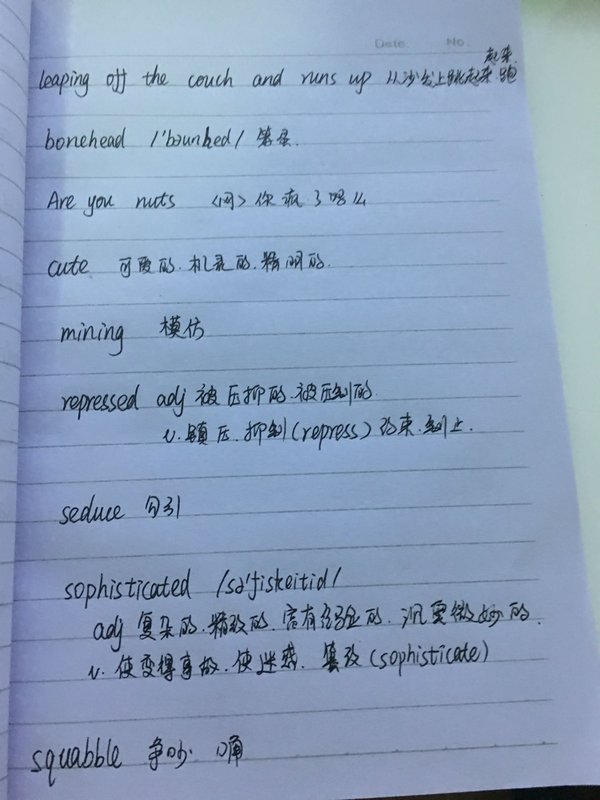 Date. No.
起来
leaping off the couch and runs up 从沙发上跳起来跑
bonehead /'bəunhed/ 笨蛋.
Are you nuts <问>你疯了吗
cute 可爱的.机灵的.精明的.
mining 模仿
repressed adj 被压抑的.被压制的
v.镇压.抑制(repress)约束.制止.
seduce 勾引
sophisticated /sə'fiskeitid/
adj 复杂的.精致的.富有经验的.微妙的.
v.使变得事故.使迷惑.篡改(sophisticate)
squabble 争吵.